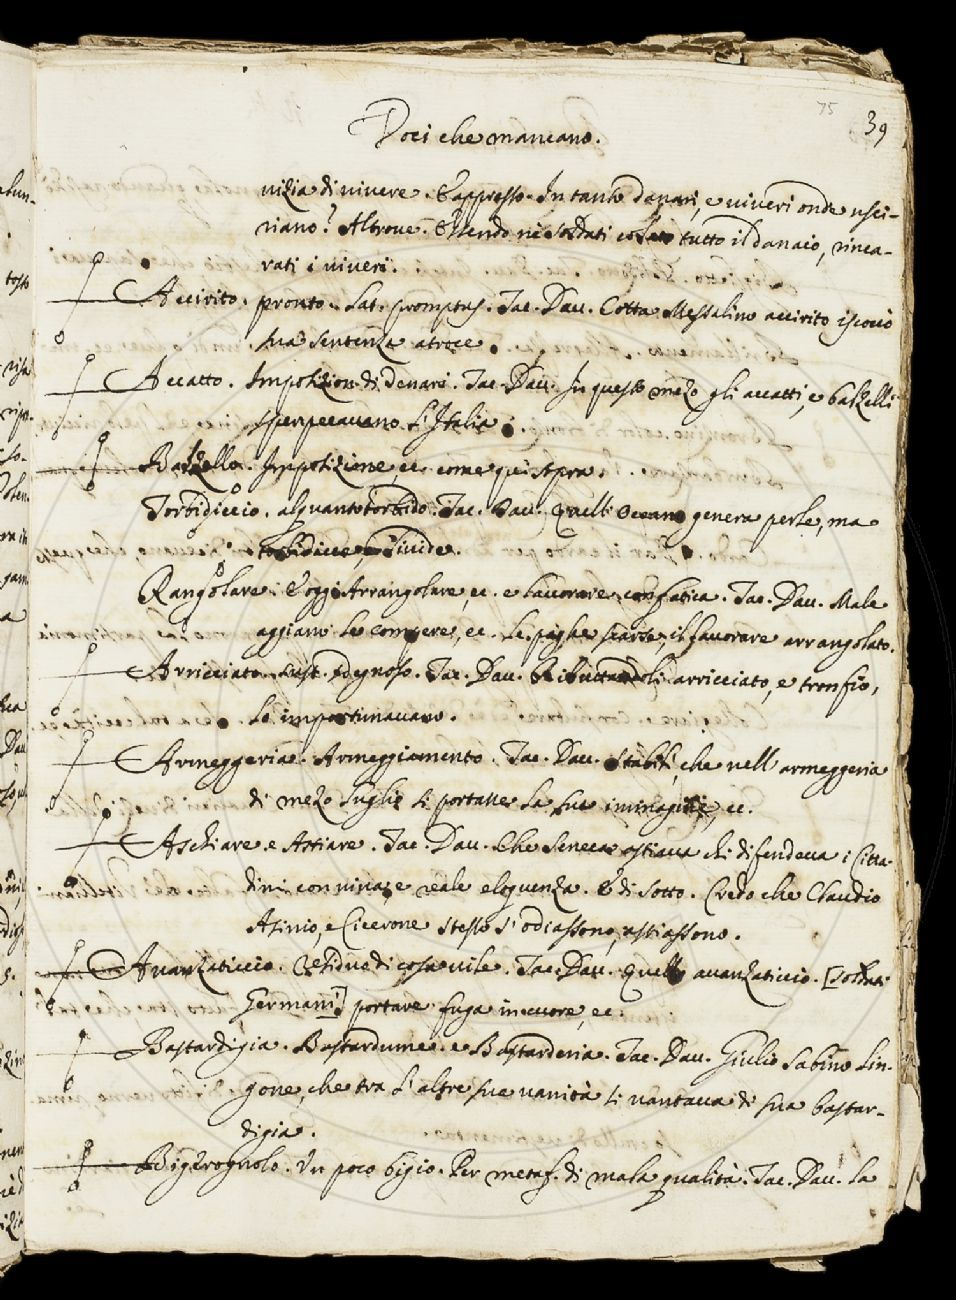 75
39
Voci che mancano.
vizia di vivere. E appresso. In tanto danari, e viveri onde usci-
riano? Altrove. Essendo ne Soldati colato tutto il danaio, rinca-
rati i viveri.
Accivito. pronto. Lat. promptus. Tac. Dav. Cotta Messalino accivito iscoccò
sua sentenza atroce.
Accatto. Imposizion di denari. Tac. Dav. In questo mezo gli accatti, e balzelli
sperperavano l'Italia.
Balzello. Imposizione, ec. come qui sopra.
Torbidiccio. alquanto torbido. Tac. Dav. Quell' Oceano genera perle, ma
torbidicce, e livide.
Rangolare. E oggi Arrangolare, ec. e lavorare con fatica. Tac. Dav. Male
aggiano le compere, ec. le paghe scarse, il lavorare arrangolato.
Arricciato. sust. sdegnoso. Tac. Dav. Ributtandoli arricciato, e tronfio,
lo importunavano.
Armeggeria. Armeggiamento. Tac. Dav. Stabilì, che nell' armeggeria
di mezo luglio si portasse la sua immagine, ec.
Aschiare e Astiare. Tac. Dav. Che Seneca astiava chi difendeva i Citta-
dini con vivace e reale eloquenza. E di sotto. Credo che Claudio
Asinio, e Cicerone stesso s'odiassono, astiassono.
Avanzaticcio. Residuo di cosa vile. Tac. Dav. Quello avanzaticcio. [Soldati
Germani] portare fuga in cuore, ec.
Bastardigia. Bastardume. e Bastarderia. Tac. Dav. Giulio Sabino Lin-
gone, che tra l'altre sue vanità si vantava di sua bastar-
digia.
Bigerognolo. Un poco bigio. Per metaf. di mala qualità. Tac. Dav. la